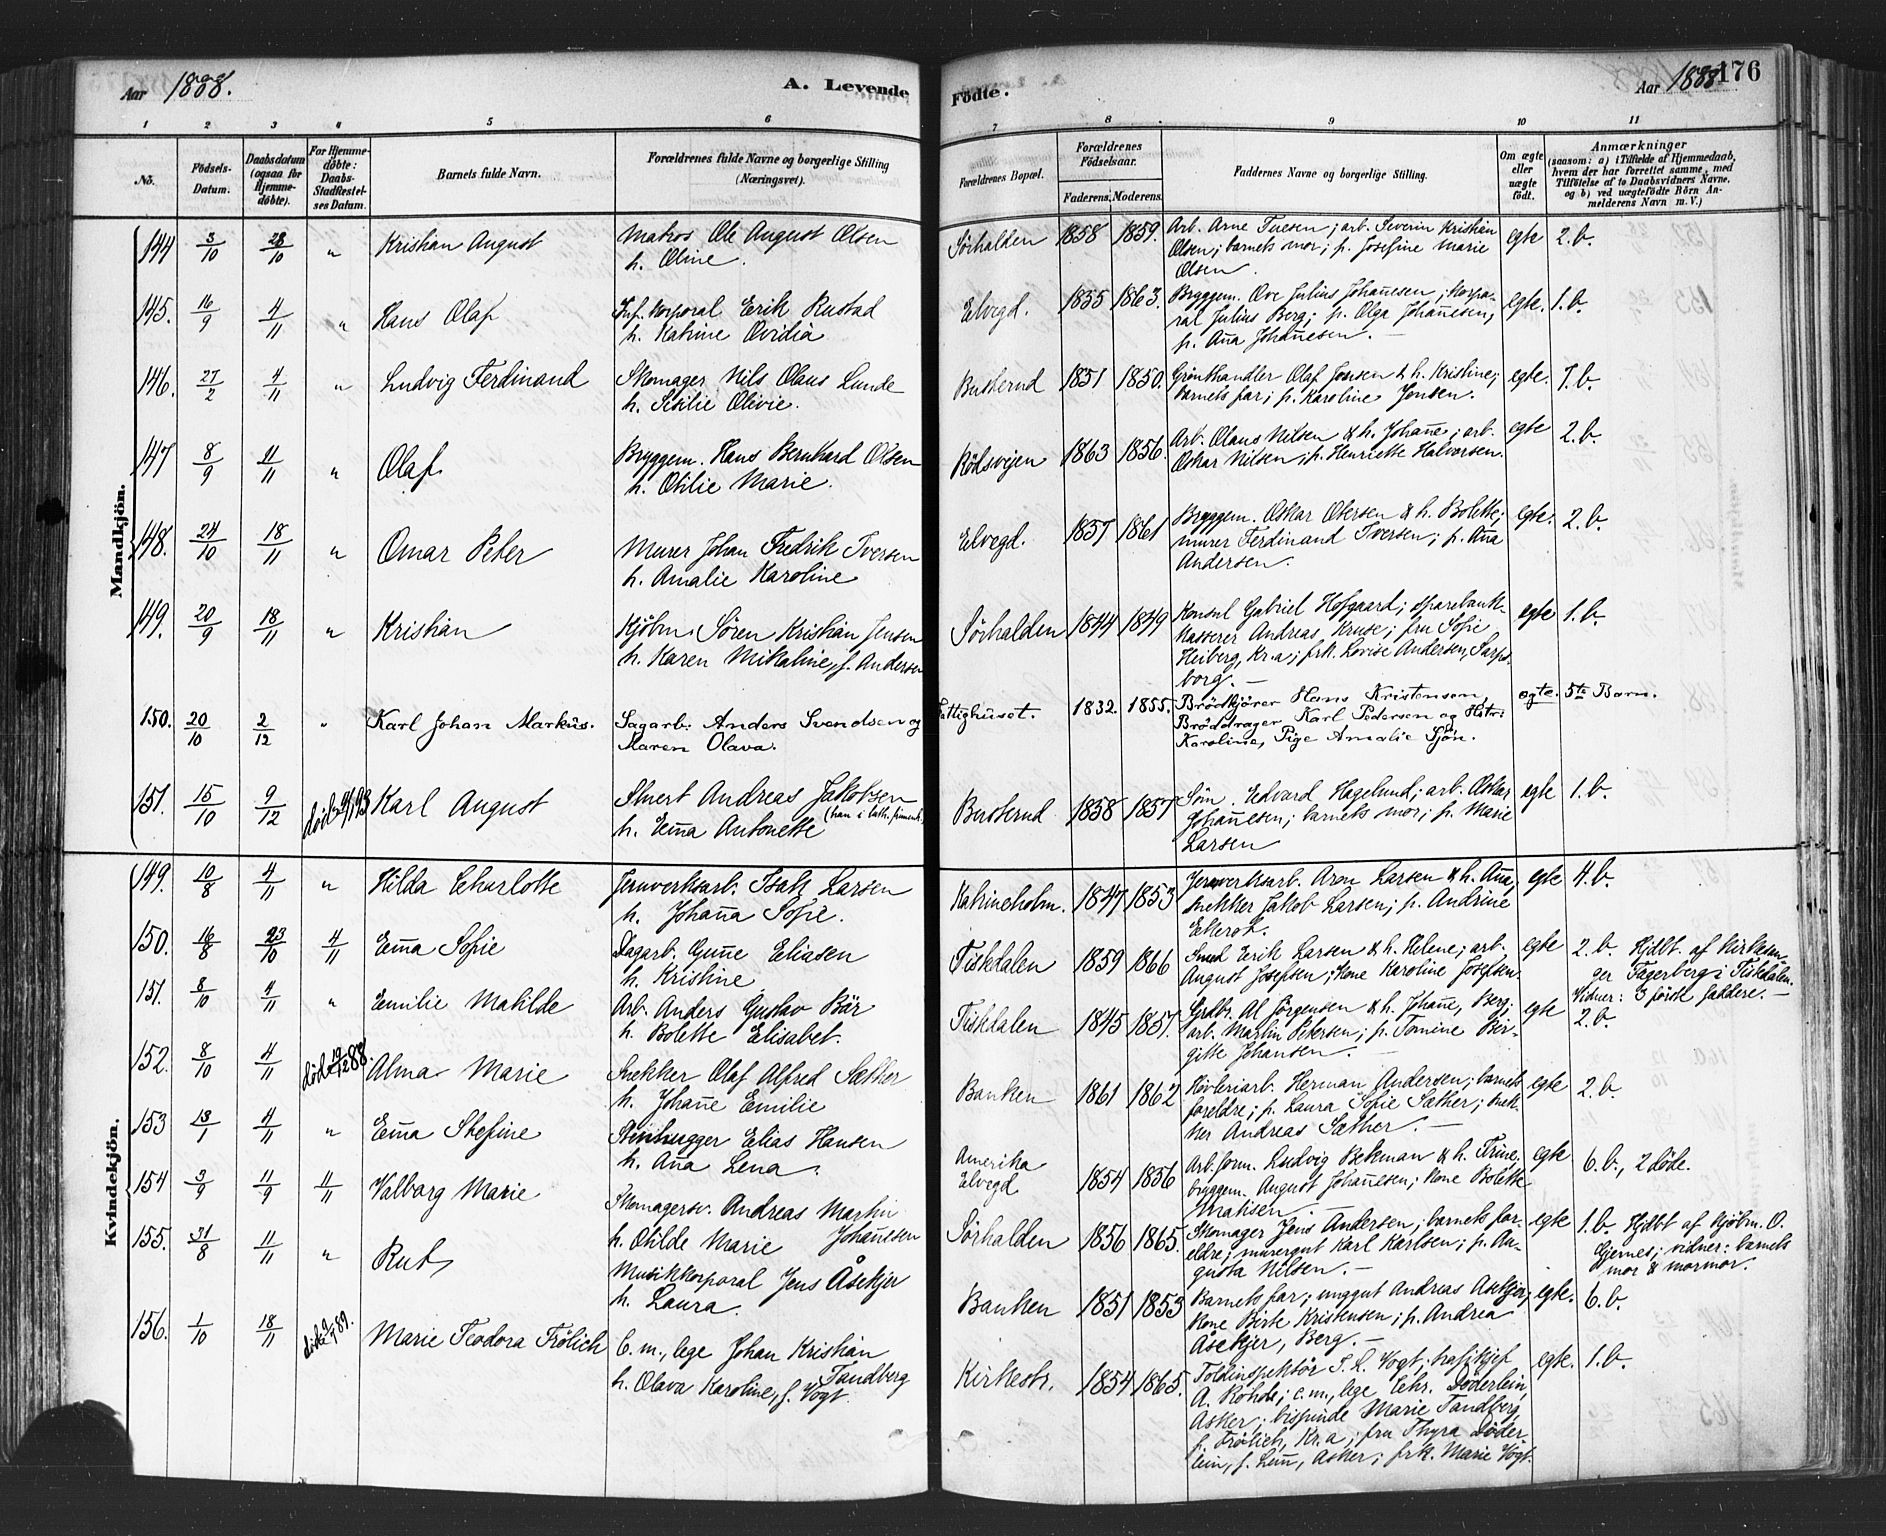 Aar 1888.
A. Levende
Födte.
Aar 1888.
176
1 2 3 4 5 6
7 8 9 10 11
No.
Födsels-
Datum.
Daabsdatum
(ogsaa for
Hjemme-
döbte).
For Hjemme-
döbte:
Daabs-
Stadfæstel-
ses Datum.
Barnets fulde Navn.
Forældrenes fulde Navne og borgerlige Stilling
(Næringsvei).
Forældrenes Bopæl.
Forældrenes
Födselsaar.
Faderens. Moderens.
Faddernes Navne og borgerlige Stilling.
Om ægte
eller
uægte
födt.
Anmærkninger
(saasom: a) i Tilfælde af Hjemmedaab,
hvem der har forrettet samme, med
Tilföielse af to Daabsvidners Navne,
og b) ved uægtefödte Börn An-
melderens Navn m. V.)
Mandkjön.
144 3/10 28/10 " Kristian August
Matros Ole August Olsen
h. Oline.
Sörhalden 1858 1859.
Arb. Arne Tuesen; arb. Severin Kristian
Olsen; barnets mor; p. Josefine Marie
Olsen.
egte 2. b.
145. 16/9 4/11 " Hans Olaf
Inf. korporal Erik Rustad
h. Katrine Ovidia
Elvegd. 1855 1863.
Bryggem. Ove Julius Johañesen; korpo-
ral Julius Berg; p. Olga Johañesen,
p. Aña Johañesen.
egte. 1. b.
146. 27/2 4/11 " Ludvig Ferdinand
Skomager Nils Olaus Lunde
h. Sesilie Olivie.
Busterud 1851 1850.
Grönthandler Olaf Jensen & h. Kristine;
barnets far; p. Karoline Jensen.
egte. 7. b.
147 8/9 11/11 " Olaf
Bryggem. Hans Bernhard Olsen
h. Otilie Marie.
Rödsvejen 1863 1856.
Arb. Olaus Nilsen & h. Johañe; arb.
Oskar Nilsen; p. Henriette Halvorsen.
egte 2. b.
148. 24/10 18/11 " Omar Peter
Murer Johan Fredrik Iversen
h. Amalie Karoline
Elvegd. 1857 1861
Bryggem. Oskar Olersen & h. Bolette;
murer Ferdinand Iversen; p. Aña
Andersen.
egte. 2. b.
149. 20/9 18/11 " Kristian
Kjöbm. Sören Kristian Jensen
h. Karen Mikaline, f. Andersen
Sörhalden 1844 1849
Konsul Gabriel Hofgaard; sparebank-
kasserer Andreas Kruse; fru Sofie
Heiberg, Kr.a; frk. Lovise Andersen, Sarps-
borg.
egte 1. b.
150. 20/10 2/12 " Karl Johan Markus.
Sagarb. Anders Svendsen og
Maren Olava.
Fattighuset. 1832. 1855.
Brödkjörer Hans Kristensen,
Bröddrager Karl Pedersen og Hstr:
Karoline, Pige Amalie Sjön.
egte. 5te Barn.
151. 15/10 9/12 Karl August
Stuert Andreas Jakobsen
(han i luth. frimenh.)
h. Eṁa Antonette
Busterud 1858 1857
Söm. Edvard Hagelund; arb. Oskar
Johañesen; barnets mor; p. Marie
Larsen
egte 1. b.
Kvindekjön.
149. 10/8 4/11 " Hilda Charlotte
Jernverksarb. Isak Larsen
h. Johaña Sofie.
Katrineholm. 1847 1853
Jernverksarb. Aron Larsen & h. Aña,
snekker Jakob Larsen; p. Andrine
Ekerot.
egte 4. b.
150. 16/8 23/10 4/11 Eṁa Sofie
Dagarb. Guñe Eliasen
h. Kristine
Tistedalen 1859 1866
Smed Erik Larsen & h. Helene; arb.
August Josefsen; kone Karoline Josefsen.
egte 2. b. Hjdbt. af kirkesan-
ger Fagerberg i Tistedalen.
Vidner: 3 förste faddere.
151. 8/10 4/11 " Emilie Matilde
Arb. Anders Gustav Bär
h. Bolette Elisabet.
Tistedalen 1845 1857.
Grdbr. Al Jörgensen & h. Johañe, Berg;
arb. Martin Petersen; p. Tomine Bir-
gitte Johansen.
egte 2. b.
152. 8/10 4/11 död 19/12 88. Alma Marie
Snekker Olaf Alfred Sæther
h. Johañe Emilie
Banken 1861 1862
Hövleriarb. Herman Andersen; barnets
foreldre; p. Laura Sofie Sæther; snek-
ker Andreas Sæther.
egte 2. b.
153 13/1 4/11 " Eṁa Stefine
Stenhugger Elias Hansen
h. Aña Lena.
Amerika
Elvegd 1854 1856
Arb.form. Ludvig Bekman & h. Trine;
bryggem. August Johañesen; kone Bolette
Matisen
egte 6. b., 2 döde.
154 3/9 11/9 11/11 Valborg Marie
Skomagersv. Andreas Martin
Johañesen
h. Otilde Marie
Sörhalden 1856 1865.
Skomager Jens Andersen; barnets for-
eldre; murergut Karl Karlsen; p. Au-
gusta Nilsen.
egte 1. b. Hjdbt af kjöbm. O.
Gjernes; vidner: barnets
mor & mormor.
155. 31/8 11/11 " Rut
Musikkorporal Jens Åsekjer
h. Laura.
Banken 1851 1853
Barnets far; unggut Andreas Asekjer;
kone Birte Kristensen; p. Andrea
Åsekjer, Berg.
egte. 6. b.
156. 1/10 18/11 Marie Teodora Frölich
C. m., lege Johan Kristian
Tandberg
h. Olava Karoline, f. Vogt.
Kirkestr. 1854 1865.
Toldinspektör Vogt; trafikchef
A. Rohde; c. m., lege Chr. Döderlein,
Asker; bispinde Marie Tandberg
f. Frölich, Kr.a; fru Thyra Döder
lein, f. Leuñ, Asker; frk. Marie Vogt.
egte. 1. b.